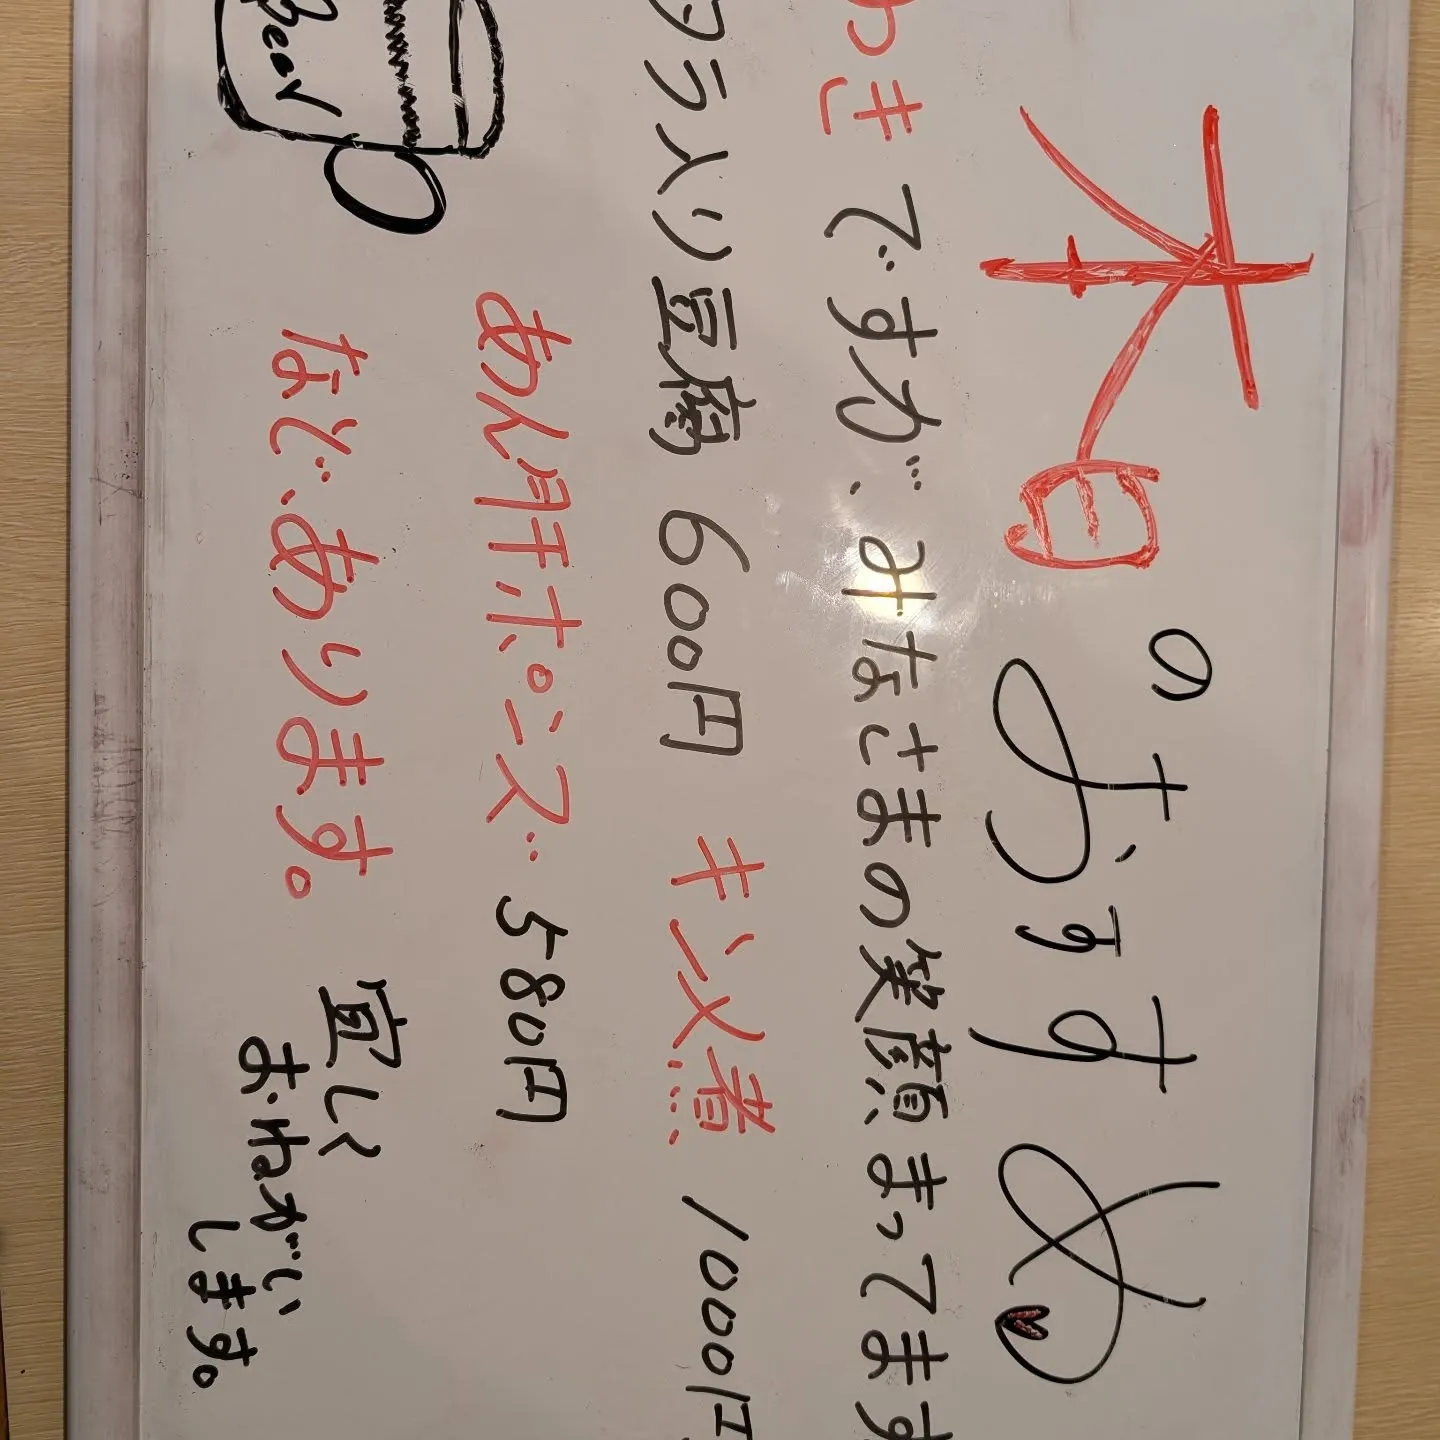 本日のおすすめ
つきですが、みなさまの笑顔まってます
タラ入り豆腐 600円 キンメ煮 1000円
あん肝ポンズ 580円
Beer
などあります。
宜しく
おねがい
します。